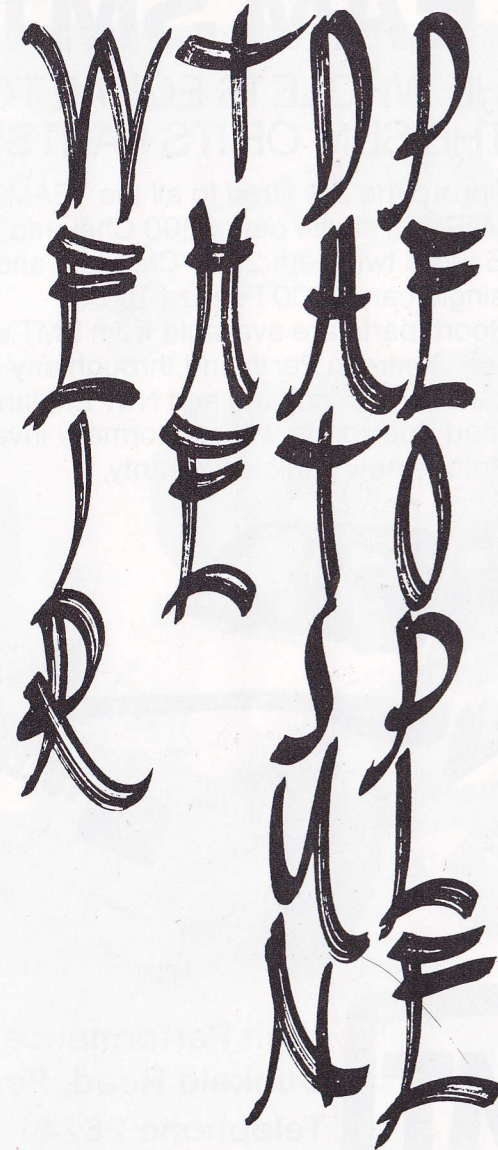 WEIR
THE
DATSUN
PEOPLE